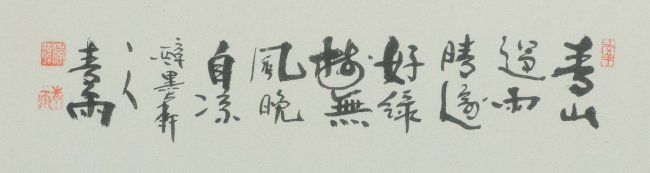 青山
過雨
晴逾
好綠
樹無
風晚
自凉
醉墨軒
青雨